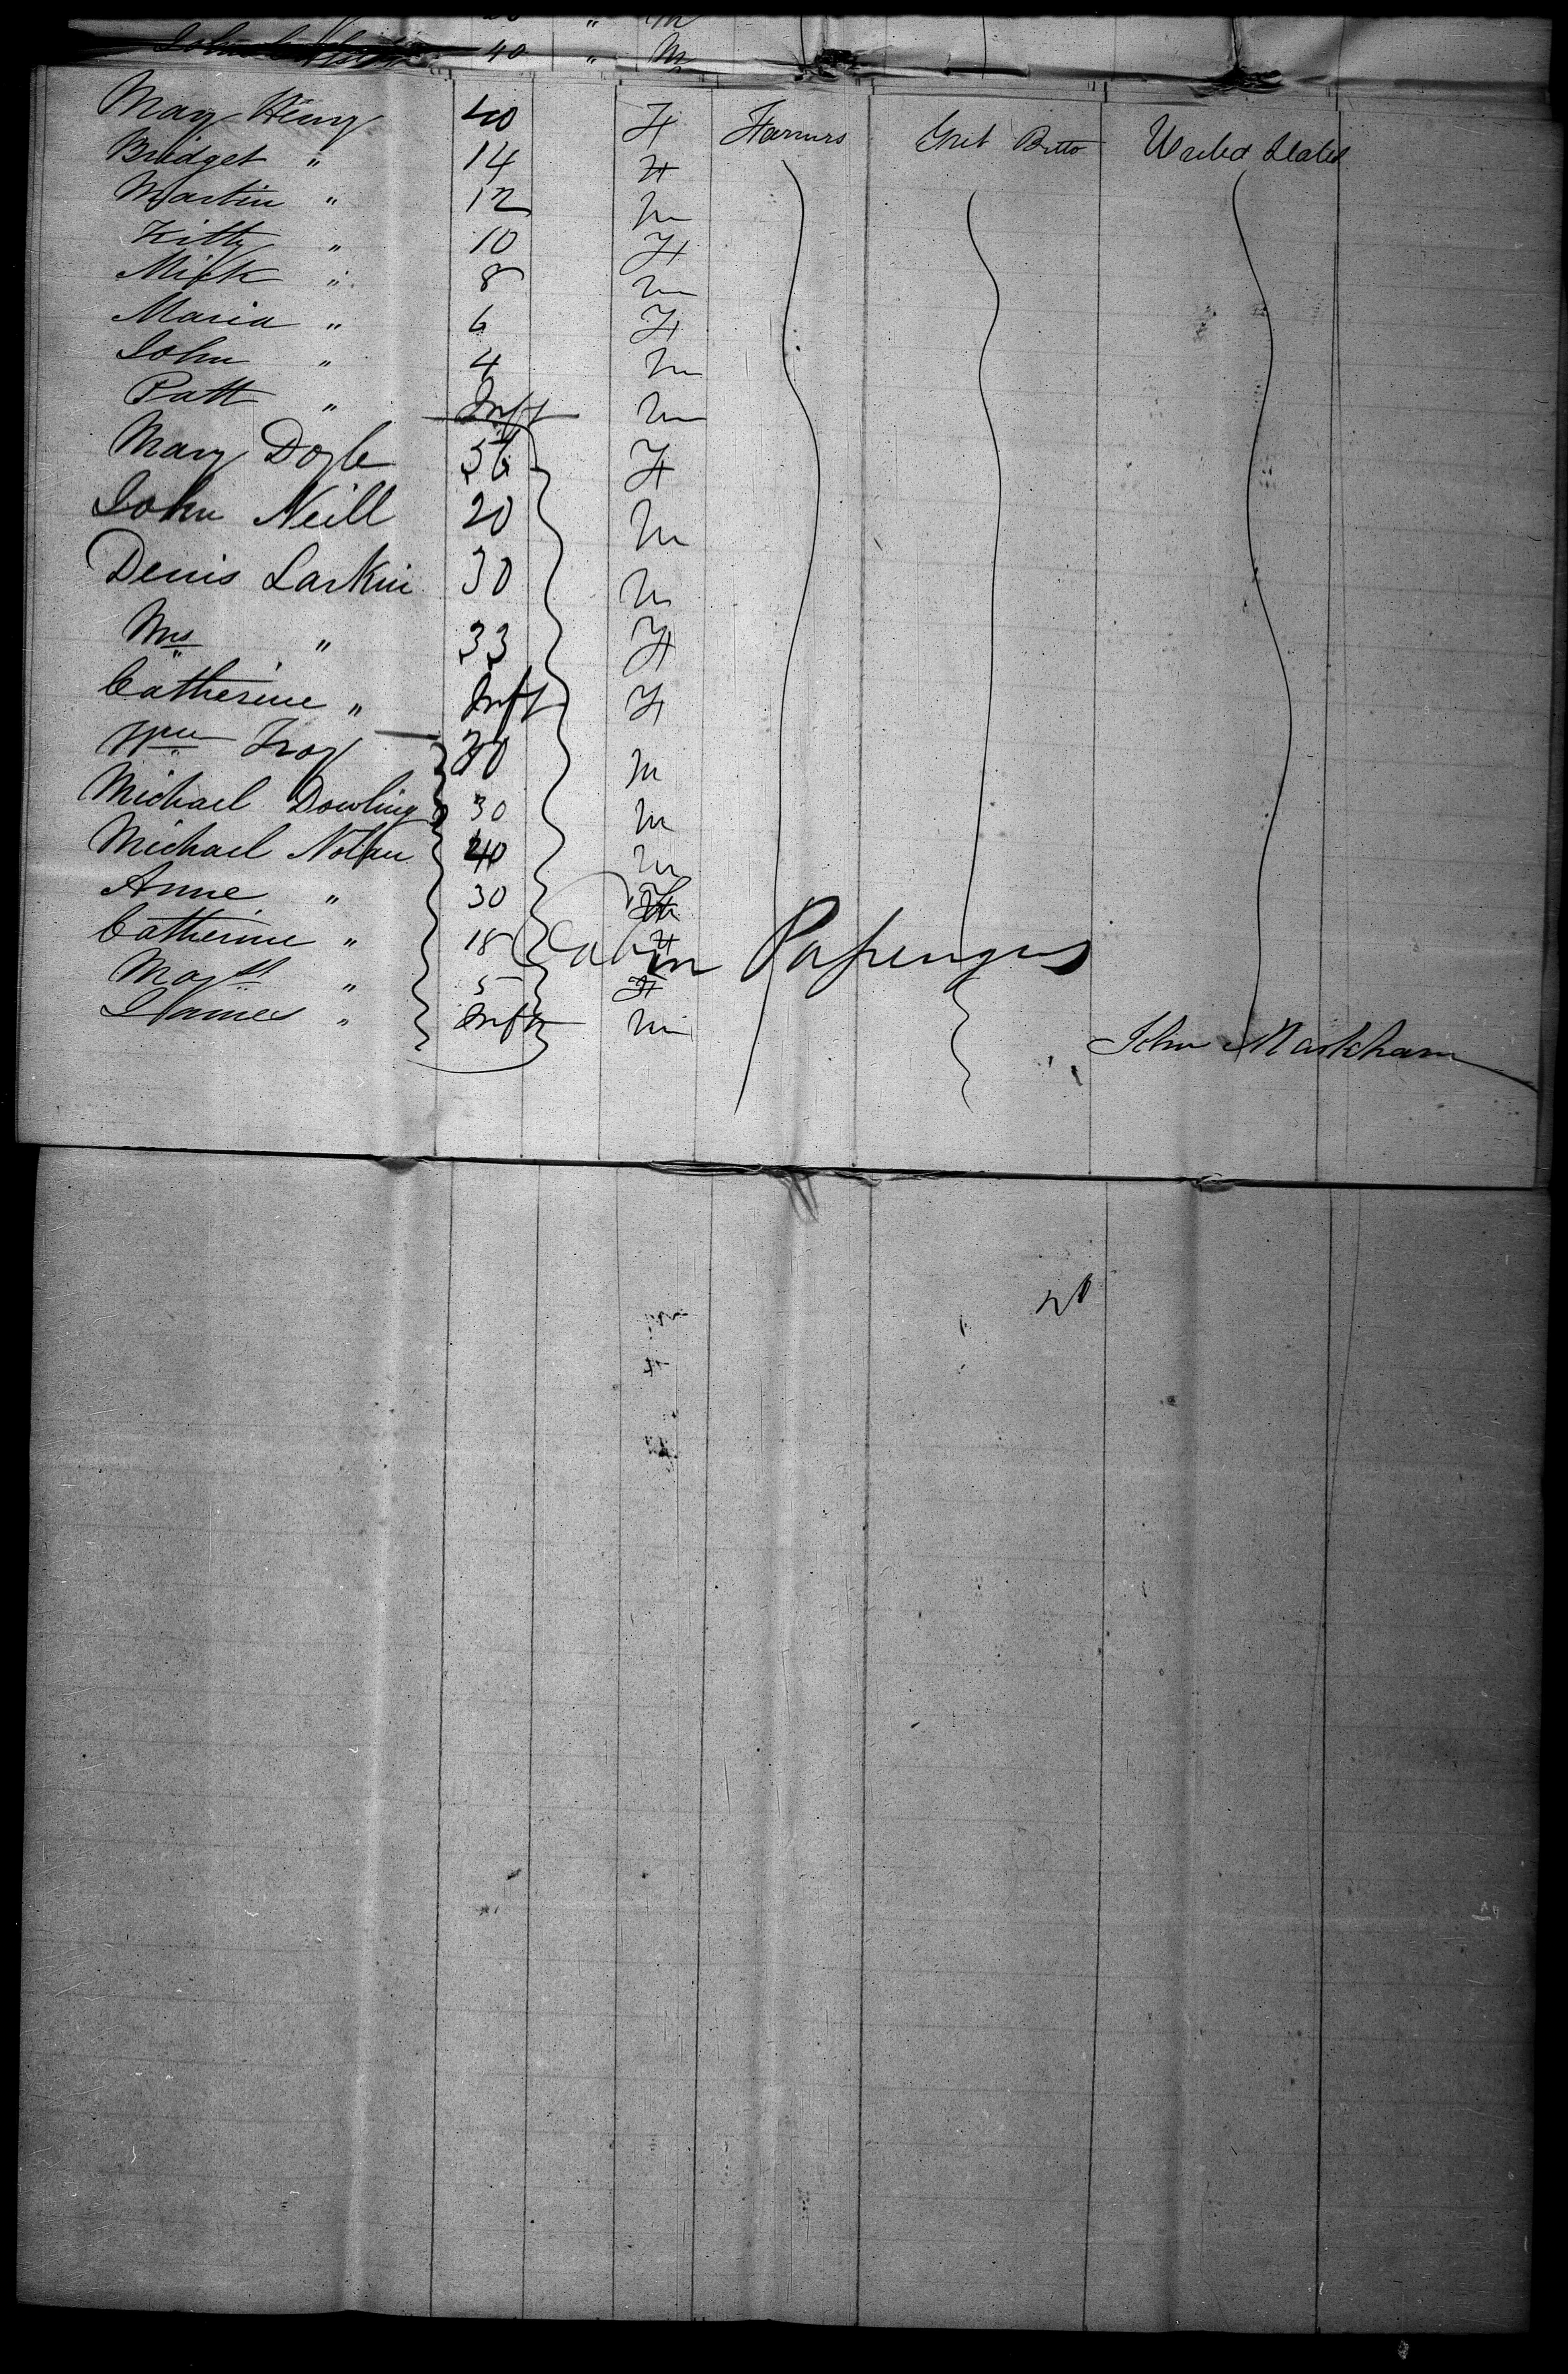 40 " M
Mary Henry 40 F Farmers Gret Britto United States
Bridget " 14 F
Martin " 12 M
Kitty " 10 F
Mick " 8 M
Maria " 6 F
John " 4 M
Patt " Inft M
Mary Doyle 56 F
John Neill 20 M
Denis Larkin 30 M
Mrs " 33 F
Catherine " Inft F
Wm Troy 30 M
Michael Dowling 30 M
Michael Nolan 40 M
Anne " 30 F
Catherine " 18 F
Cabin Passengers
Mary " 5 F
James " Inft M
John Markham